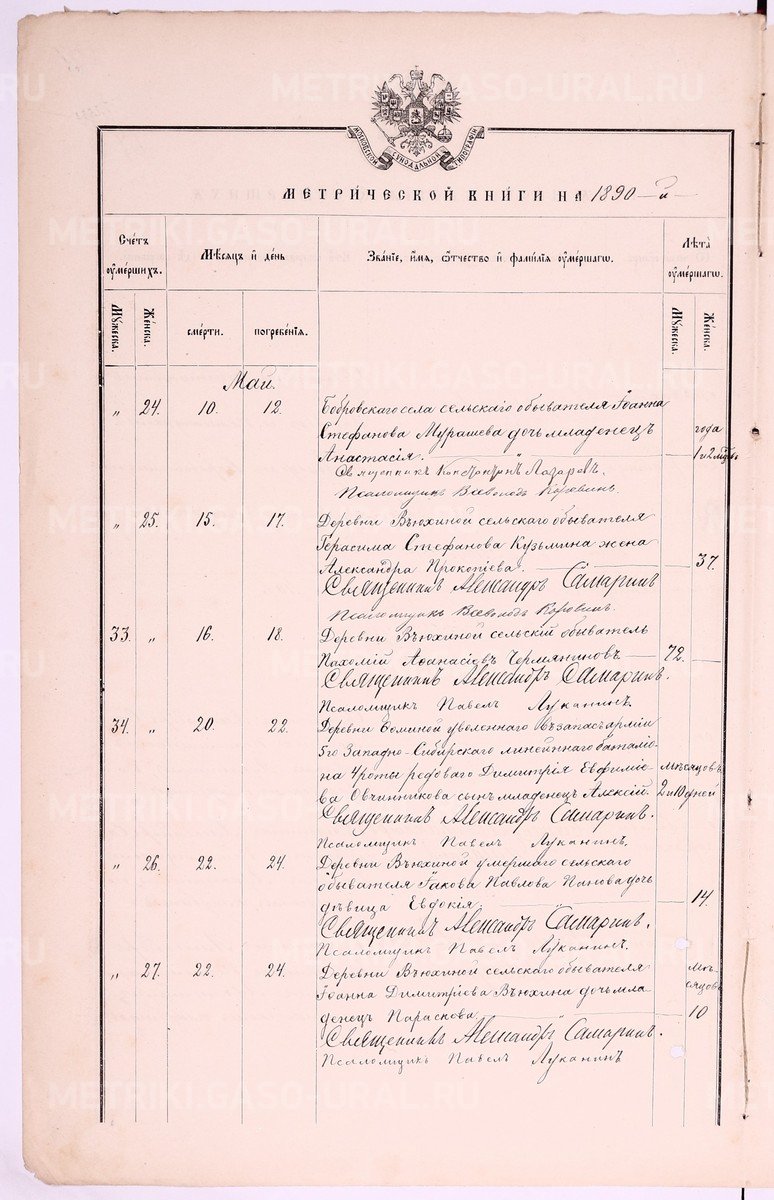 МОСКОВСКОЙ СѴНОДАЛЬНОЙ ТИПОГРАФІИ
МЕТРИЧЕСКОЙ КНИГИ НА 1890-й
Счетъ оумершихъ.
Мѣсяцъ и день
Званіе, имя, отчество и фамилія оумершагѡ.
Лѣта оумершагѡ.
Мужеска.
Женска.
смерти.
погребенія.
Мужеска.
Женска.
Май.
„ 24. 10. 12. Бобровскаго села сельскаго обывателя Іоанна
Стефанова Мурашева дочь младенецъ года
Анастасія. 1 и 2 мѣс.
Священникъ Константинъ Лазаревъ.
Псаломщикъ Всеволодъ Коровинъ.
„ 25. 15. 17. Деревни Вьюхиной сельскаго обывателя
Герасима Стефанова Кузьмина жена
Александра Прокопіева. 37.
Священникъ Александръ Самаринъ
Псаломщикъ Всеволодъ Коровинъ.
33. „ 16. 18. Деревни Вьюхиной сельскій обыватель
Пахомій Аѳанасіевъ Чермяниновъ 72.
Священникъ Александръ Самаринъ.
Псаломщикъ Павелъ Луканинъ.
34. „ 20. 22. Деревни Ѳоминой уволеннаго въ запасъ арміи
5го Западно-Сибирскаго линейнаго баталіо-
на 4 роты рядоваго Димитрія Евѳиміе- мѣсяцовъ
ва Овчинникова сынъ младенецъ Алексій. 2 и 10 дней
Священникъ Александръ Самаринъ.
Псаломщикъ Павелъ Луканинъ.
„ 26. 22. 24. Деревни Вьюхиной умершаго сельскаго
обывателя Іакова Павлова Панова дочь
дѣвица Евдокія. 14.
Священникъ Александръ Самаринъ.
Псаломщикъ Павелъ Луканинъ.
„ 27. 22. 24. Деревни Вьюхиной сельскаго обывателя мѣ-
Іоанна Димитріева Вьюхина дочь мла- сяцовъ
денецъ Параскова 10
Священникъ Александръ Самаринъ.
Псаломщикъ Павелъ Луканинъ
METRIKI.GASO-URAL.RU